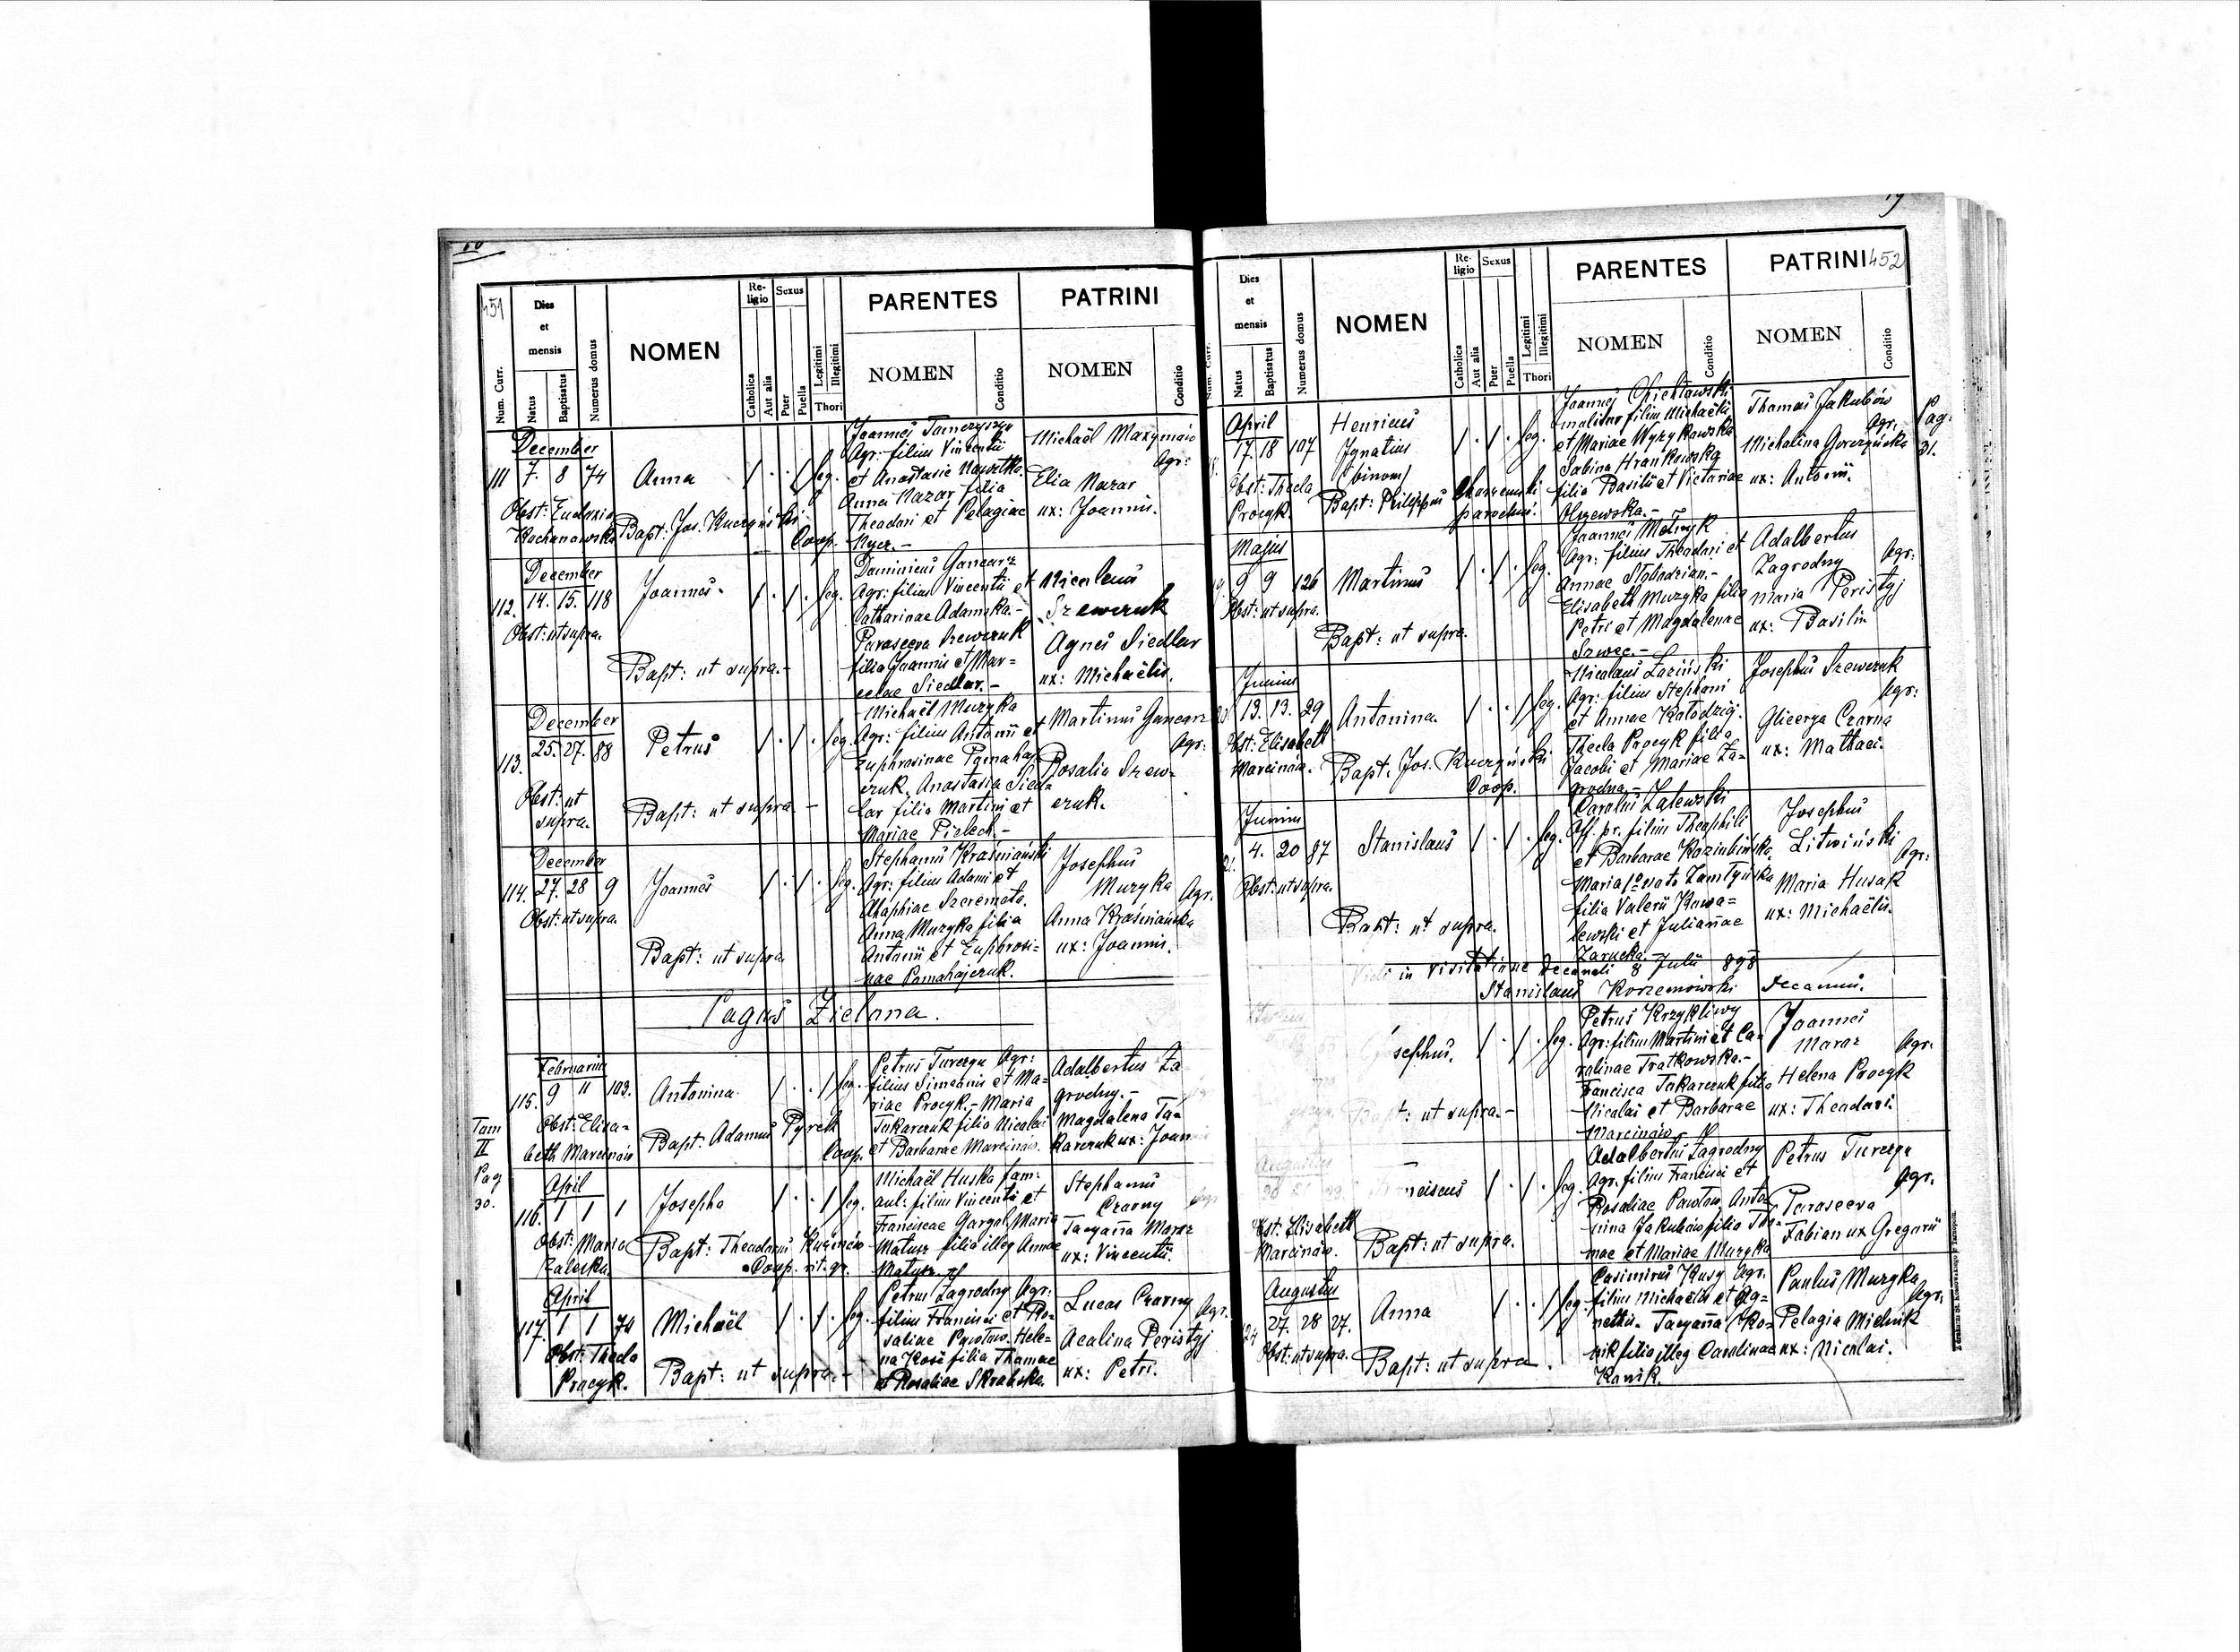 451
Num. Curr.
Dies et mensis
Natus
Baptisatus
Numerus domus
NOMEN
Religio
Catholica
Aut alia
Sexus
Puer
Puella
Legitimi
Illegitimi
Thori
PARENTES
NOMEN
Conditio
PATRINI
NOMEN
Conditio
December
111 7. 8 74
Anna
leg.
Obst: Eudoxia
Kachanowska
Bapt: Jos. Kuczyński
Coop.
Joannes Tomczyszyn
Agr: filius Vincentii
et Anastasie Nawełka.
Anna Nazar filia
Theodori et Pelagiae
Nycz.-
Michaël Maxymów
Agr:
Elia Nazar
ux: Joannis.
December
112. 14. 15. 118
Joannes.
leg.
Obst: ut supra.
Bapt: ut supra.-
Dominicus Gancarz
Agr: filius Vincentii et
Catharinae Adamska.-
Parasceva Szewczuk
filia Joannis et Mar=
celae Siedlar.-
Nicolaus
Szewczuk
Agnes Siedlar
ux: Michaëlis.
December
113. 25. 27. 88
Petrus
leg.
Obst: ut
supra.
Bapt: ut supra.-
Michaël Muzyka
Agr: filius Antonii et
Euphrosinae Pomahaj
czuk. Anastasia Sied=
lar filia Martini et
Mariae Pielech.-
Martinus Gancarz
Agr:
Rosalia Szew=
czuk.
December
114. 27. 28 9
Joannes
leg.
Obst: ut supra.
Bapt: ut supra
Stephanus Kraśniański
Agr: filius Adami et
Ahaphiae Szeremeta.
Anna Muzyka filia
Antonii et Euphrosi=
nae Pomahajczuk.
Josephus
Muzyka
Agr.
Anna Kraśniańska
ux: Joannis.
Pagus Zielona.
Februarius
115. 9 11 103.
Antonina
leg.
Tom
II
Pag
30.
Obst: Eliza=
beth Marcinów
Bapt: Adamus Pyrek
Coop.
Petrus Turczyn Agr:
filius Simeonis et Ma=
riae Procyk.- Maria
Tokarczuk filia Nicolai
et Barbarae Marcinów.
Adalbertus Za
grodny.-
Magdalena To=
karczuk ux: Joan
April
116. 1 1 1
Josepha
leg.
Obst: Maria
Zaleska.
Bapt: Theodorus Kuźmów
Coop. rit. gr.
Michaël Huska fam:
aul: filius Vincentii et
Franciscae Gargol, Maria
Matusz filia illeg Annae
Matusz
Stephanus
Czarny
Tacyanna Moroz
ux: Vincentii.
April
117. 1 1 74
Michaël
leg.
Obst: Thecla
Procyk.
Bapt: ut supra.-
Petrus Zagrodny Agr:
filius Francisci et Ro=
saliae Pawłow. Hele=
na Koś filia Thomae
et Rosaliae Skrabska.
Lucas Czarny
Agr.
Acalina Perestyj
ux: Petri.
19
452
Num. Curr.
Dies et mensis
Natus
Baptisatus
Numerus domus
NOMEN
Religio
Catholica
Aut alia
Sexus
Puer
Puella
Legitimi
Illegitimi
Thori
PARENTES
NOMEN
Conditio
PATRINI
NOMEN
Conditio
April
17. 18 107
Henricus
Ignatius
(binom)
leg.
Obst: Thecla
Procyk.
Bapt: Philippus
parochus.
Joannes
filius Michaëlis
et Mariae Wyzykowska
Sabina Hrankowska
filia Basilii et Victoriae
Olszewska.-
Thomas Jakubów
Agr.
Michalina Gorczyńska
ux: Antonii.
Pag:
31.
Majus
9 9 126
Martinus
leg.
Obst: ut supra.
Bapt: ut supra.
Joannes Melnyk
Agr: filius Theodori et
Annae Słobodzian.-
Elisabeth Muzyka filia
Petri et Magdalenae
Szwec.-
Adalbertus
Zagrodny
Agr:
Maria Peristyj
ux: Basilii
Junius
13. 13. 29
Antonina.
leg.
Obst: Elisabeth
Marcinów.
Bapt. Jos. Kuczyński
Coop.
Nicolaus Łaciński
Agr: filius Stephani
et Annae Kołodzij.
Thecla Procyk filia
Jacobi et Mariae Za=
grodna.-
Josephus Szewczuk
Agr:
Glicerya Czarna
ux: Mathaei.
Junius
4. 20 87
Stanislaus
leg.
Obst: ut supra.
Bapt: ut supra.
Carolus Zalewski
Off. pr. filius Theophili
et Barbarae
Maria
filia Valerii Kowa=
lewski et Juliannae
Zarucka.-
Josephus
Litwiński
Agr:
Maria Husak
ux: Michaëlis.
Vidi in visitatione decanali 8 Julii 898
Stanislaus Korzeniowski Decanus.
sephus.
leg.
Bapt: ut supra.-
Petrus Krzykliwy
Agr: filius Martini et Ca=
rolinae Tratkowska.-
Francisca Tokarczuk filia
Nicolai et Barbarae
Marcinów.-
Joannes
Moroz
Agr.
Helena Procyk
ux: Theodori.
Augustus
20 21 29.
nciscus
leg.
Obst. Elisabeth
Marcinów.
Bapt: ut supra.
Adalbertus Zagrodny
Agr. filius Francisci et
Rosaliae Pawłow. Anto=
nina Jakubów filia Tho=
mae et Mariae Muzyka
Petrus Turczyn
Agr.
Parasceva
Fabian ux Gregorii
Augustus
27. 28 27.
Anna
leg.
Obst: ut supra.
Bapt: ut supra.
Casimirus Kusy Agr.
filius Michaëlis et Ag=
nettis. Tacyanna Ko=
nik filia illeg Carolinae
Konik.
Paulus Muzyka
Agr:
Pelagia Mielnik
ux: Nicolai.